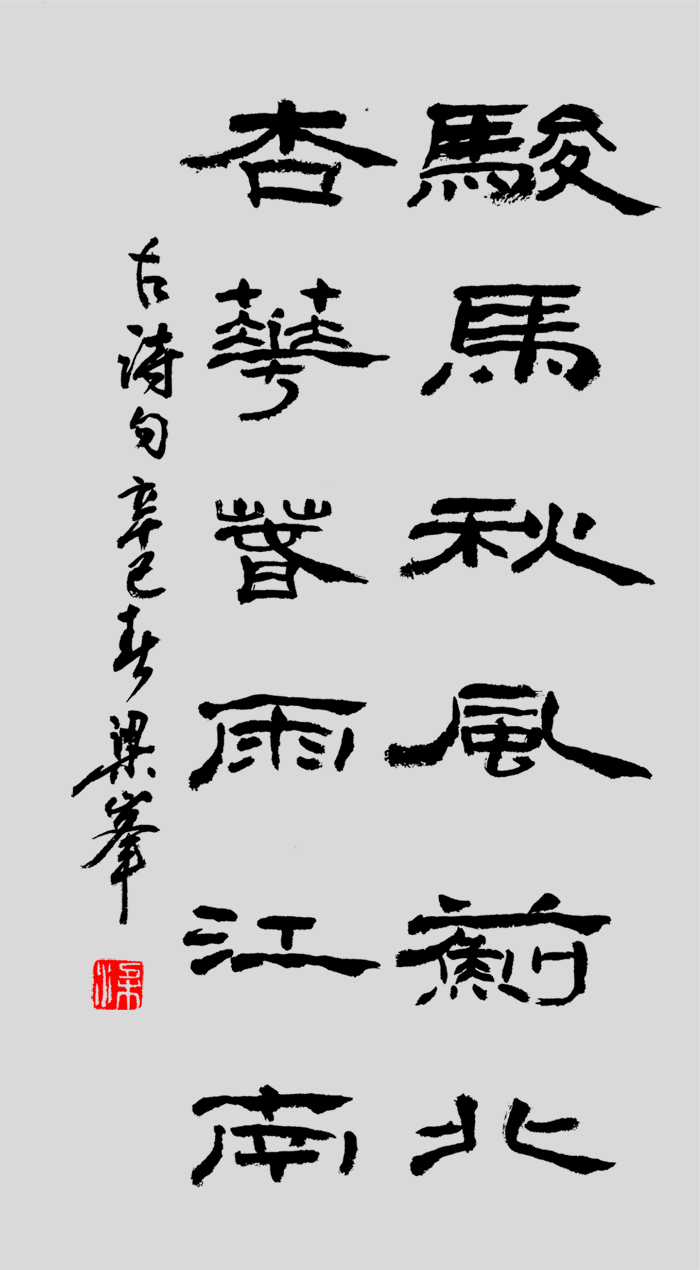 駿馬秋風薊北
杏華春雨江南
古詩句辛巳春梁峯
梁